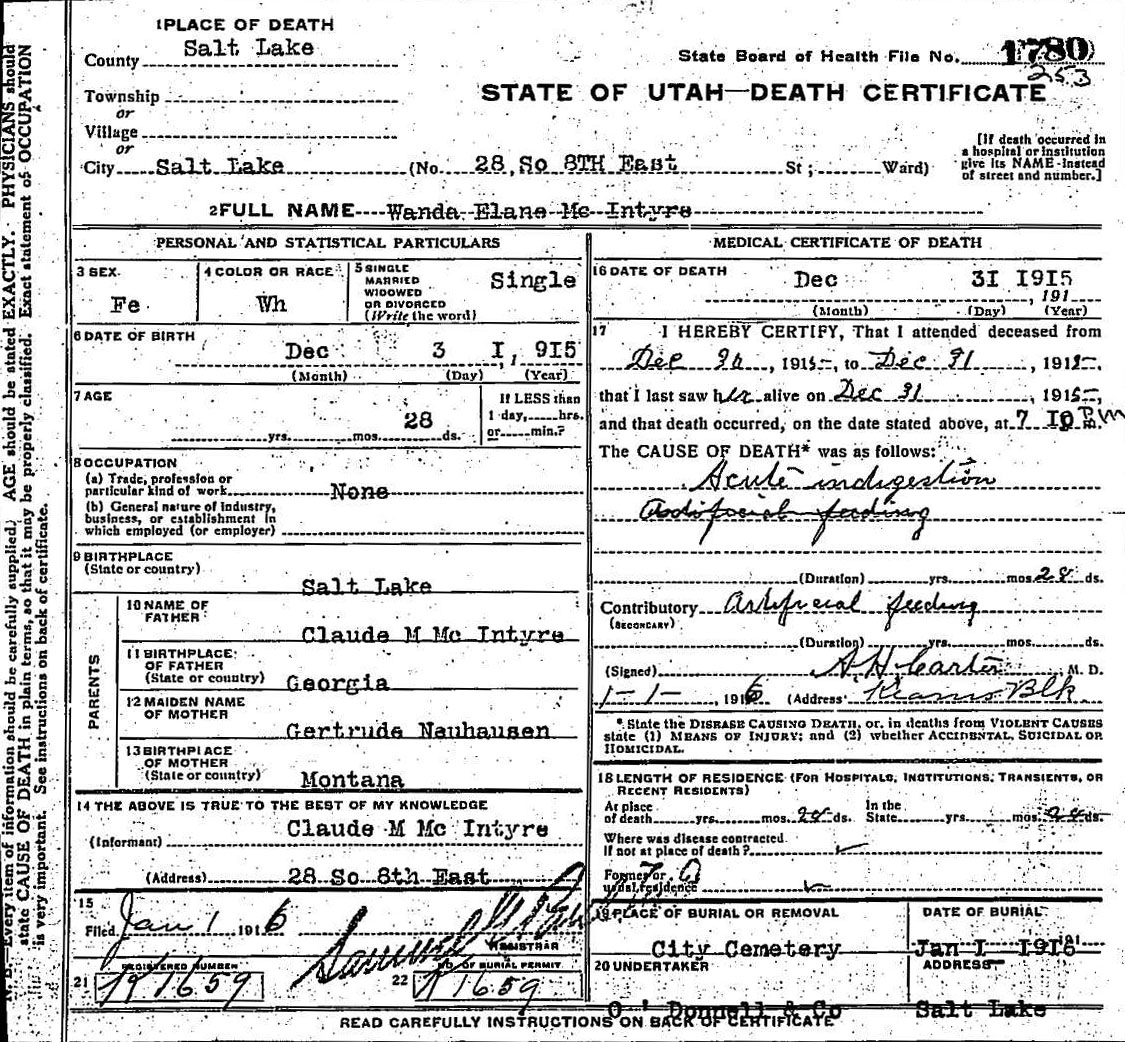 1 PLACE OF DEATH
County Salt Lake
State Board of Health File No. 1780
253
Township
or
Village
or
STATE OF UTAH—DEATH CERTIFICATE
[If death occurred in a hospital or institution give its NAME instead of street and number.]
City Salt Lake (No. 28, So 8TH East St; Ward)
2 FULL NAME Wanda Elane Mc Intyre
PERSONAL AND STATISTICAL PARTICULARS
3 SEX Fe
4 COLOR OR RACE Wh
5 SINGLE MARRIED WIDOWED OR DIVORCED (Write the word) Single
6 DATE OF BIRTH
Dec 3 I, 915
(Month) (Day) (Year)
7 AGE
yrs. mos. 28 ds.
If LESS than 1 day, hrs. or min.?
8 OCCUPATION
(a) Trade, profession or particular kind of work None
(b) General nature of industry, business, or establishment in which employed (or employer)
9 BIRTHPLACE
(State or country) Salt Lake
PARENTS
10 NAME OF FATHER Claude M Mc Intyre
11 BIRTHPLACE OF FATHER (State or country) Georgia
12 MAIDEN NAME OF MOTHER Gertrude Neuhausen
13 BIRTHPLACE OF MOTHER (State or country) Montana
14 THE ABOVE IS TRUE TO THE BEST OF MY KNOWLEDGE
(Informant) Claude M Mc Intyre
(Address) 28 So 8th East
15
Filed Jan 1 1916
REGISTRAR
21 REGISTERED NUMBER 11659
22 NO. OF BURIAL PERMIT 11659
MEDICAL CERTIFICATE OF DEATH
16 DATE OF DEATH
Dec 3I I9I5
, 191
(Month) (Day) (Year)
17 I HEREBY CERTIFY, That I attended deceased from
Dec 30, 1915, to Dec 31, 1915,
that I last saw her alive on Dec 31, 1915,
and that death occurred, on the date stated above, at 7 I0 P.m
The CAUSE OF DEATH* was as follows:
Acute indigestion
Artificial feeding
(Duration) yrs. mos. 28 ds.
Contributory Artificial feeding
(SECONDARY)
(Duration) yrs. mos. ds.
(Signed) A. H. Carter M. D.
1-1-, 1916 (Address) Kearns Blk
*State the DISEASE CAUSING DEATH, or, in deaths from VIOLENT CAUSES
state (1) MEANS OF INJURY; and (2) whether ACCIDENTAL, SUICIDAL OR
HOMICIDAL.
18 LENGTH OF RESIDENCE (FOR HOSPITALS, INSTITUTIONS, TRANSIENTS, OR
RECENT RESIDENTS)
At place of death yrs. mos. 28 ds. In the State yrs. mos. 28 ds.
Where was disease contracted
if not at place of death?
Former or
usual residence
19 PLACE OF BURIAL OR REMOVAL
City Cemetery
DATE OF BURIAL
Jan I 1916 191
20 UNDERTAKER
O'Donnell & Co
ADDRESS
Salt Lake
READ CAREFULLY INSTRUCTIONS ON BACK OF CERTIFICATE
Every item of information should be carefully supplied. AGE should be stated EXACTLY. PHYSICIANS should
state CAUSE OF DEATH in plain terms, so that it may be properly classified. Exact statement of OCCUPATION
is very important. See instructions on back of certificate.